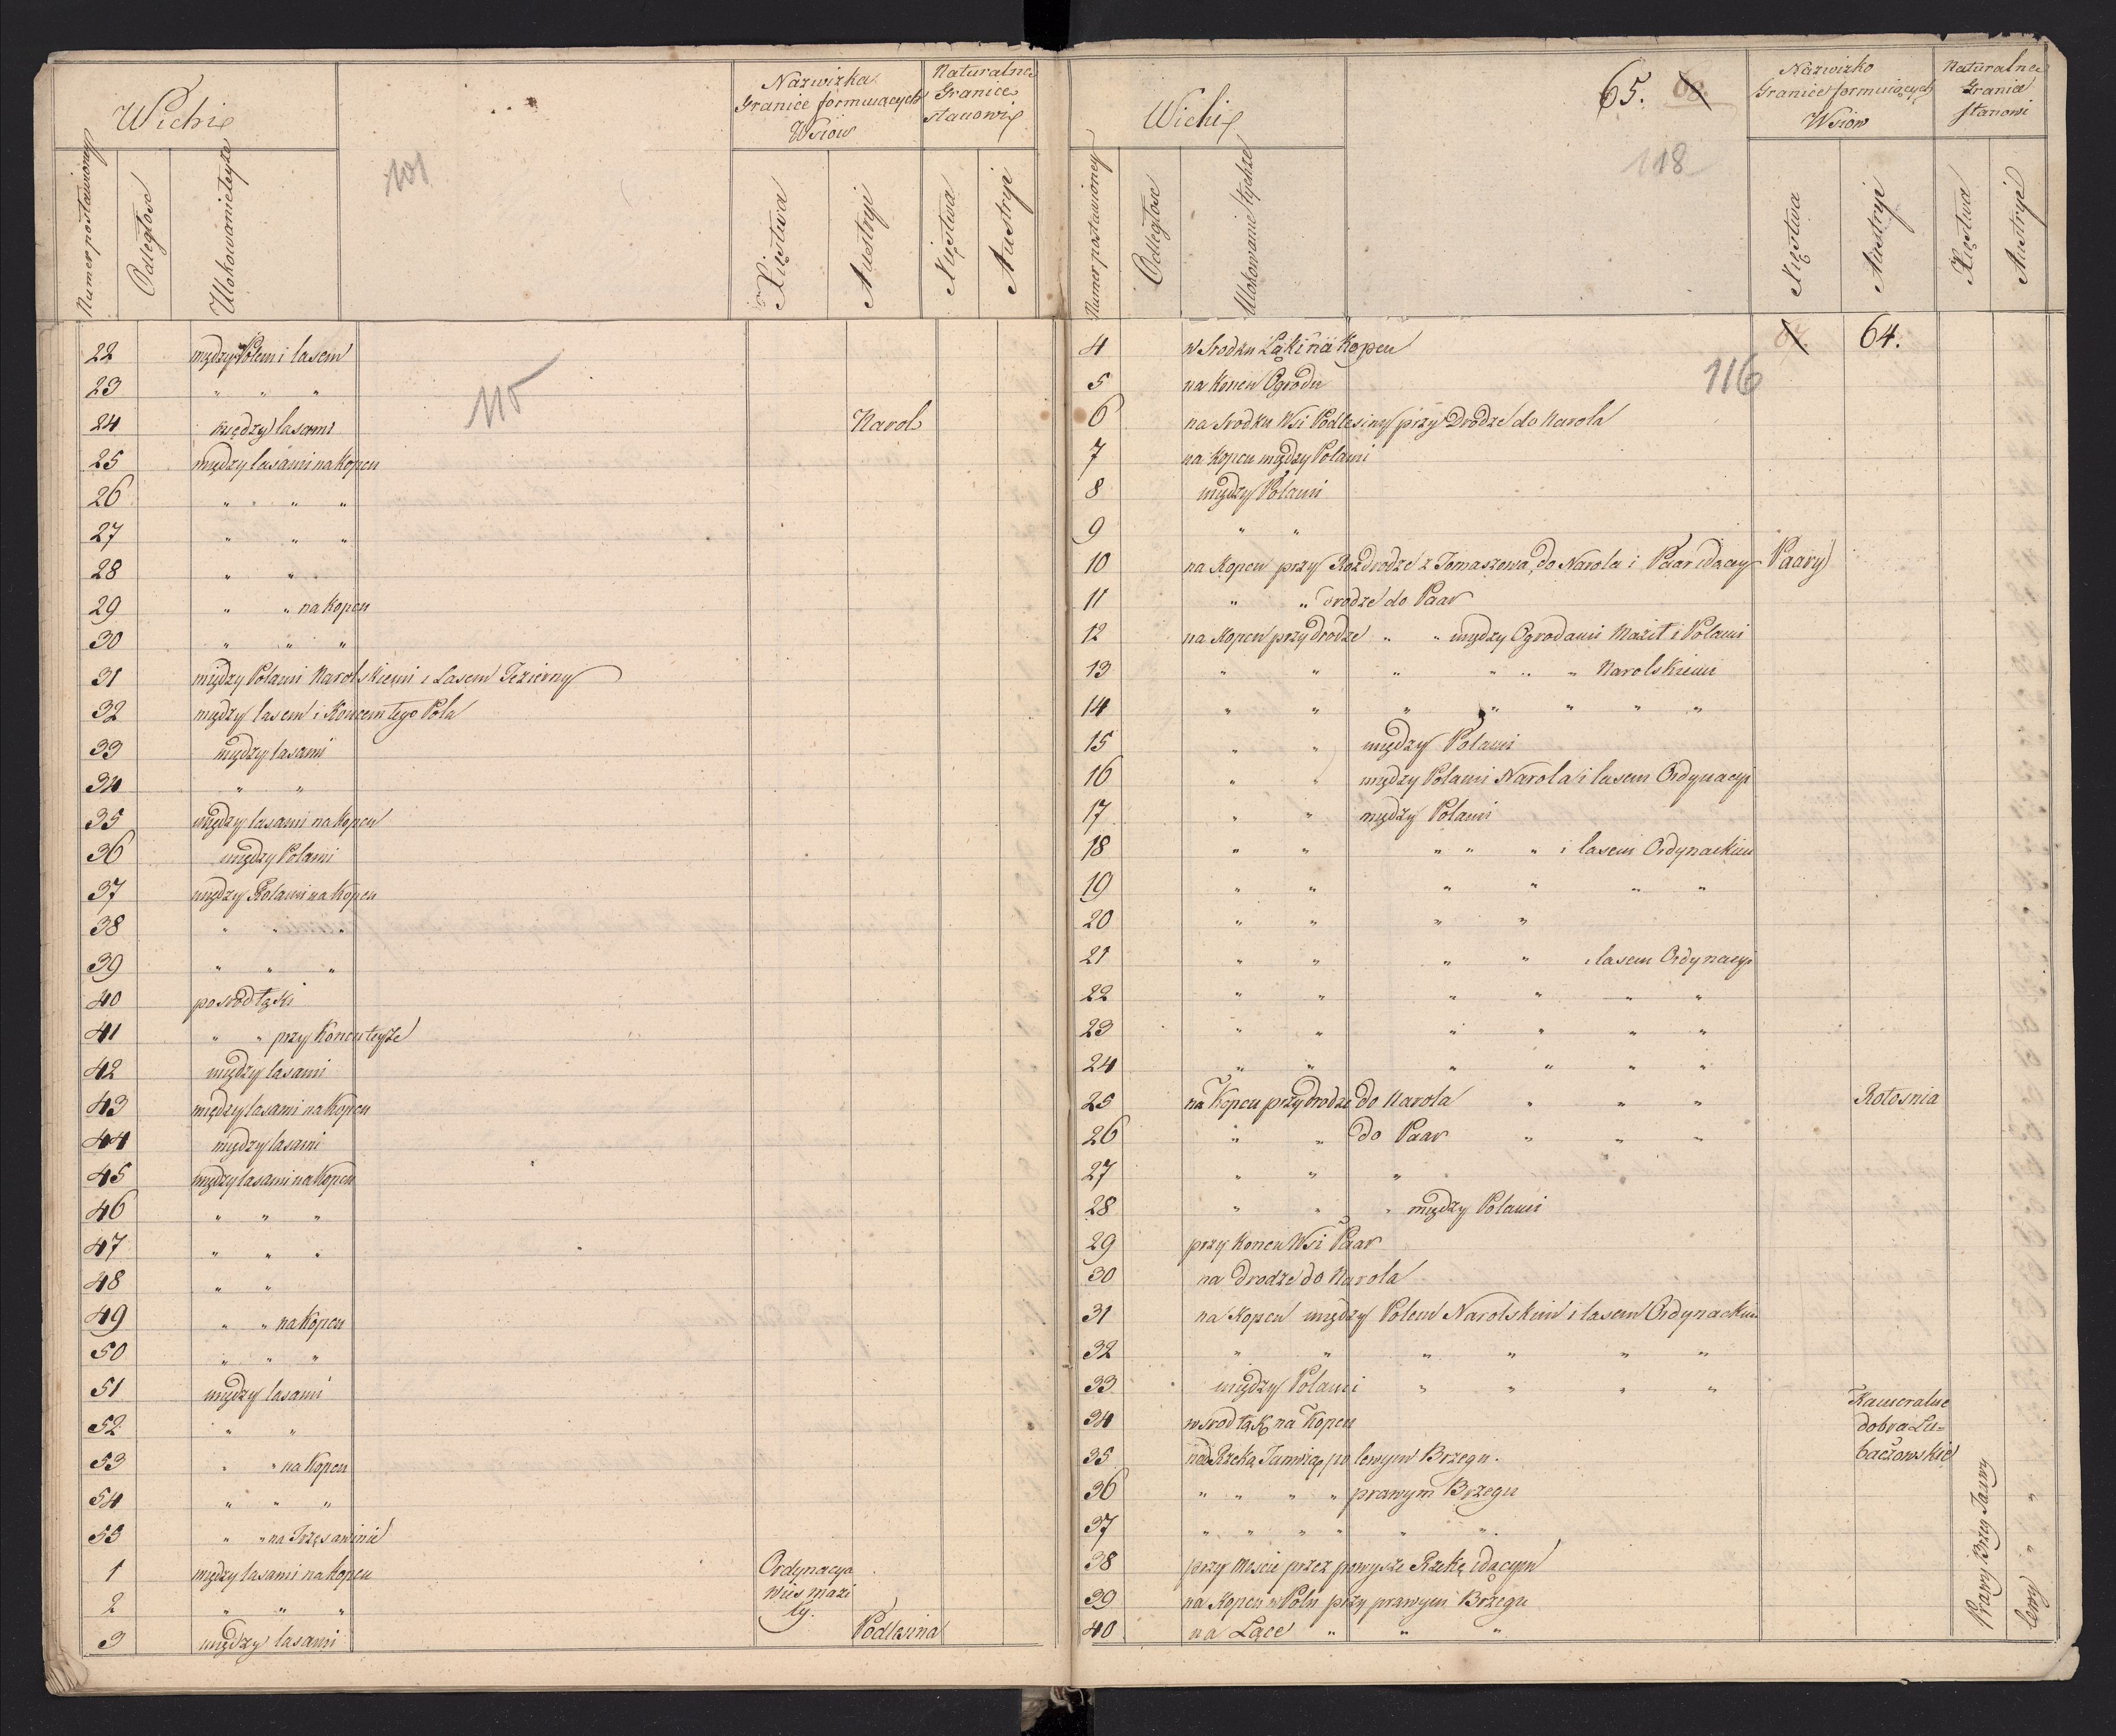 Wichi
Numer postawioney
Odległosc
Ulokowanie teyże
101
Nazwizka
Granice formuiących
Wsiow
Xięstwa
Austryi
Naturalne
Granice
stanowi
Xięstwa
Austryi
115
22 między Polem i lasem
23 " " "
24 między lasami Narol
25 między lasami na Kopcu
26 " " "
27 " " "
28 " "
29 " " na Kopcu
30 " " "
31 między Polami Narolskiemi i Lasem Jezierny
32 między lasem i Koncem tego Pola
33 między lasami
34 " "
35 między lasami na Kopcu
36 między Polami
37 między Polami na Kopcu
38 " " "
39 " " "
40 posrod łąki
41 " " przy Koncu teyże
42 między lasami
43 między lasami na Kopcu
44 między lasami
45 między lasami na Kopcu
46 " " "
47 " " "
48 " "
49 " " na Kopcu
50 " " "
51 między lasami
52 " "
53 " " na Kopcu
54 " " "
55 " " na Trzęsawinie
1 między lasami na Kopcu Ordynacya
2 " " " Wies Mazi
ły.
3 między lasami Podlesina
Wichi
Numer postawioney
Odległosc
Ulokowanie tychże
65.
118
Nazwizko
Granice formuiących
Wsiow
Xięstwa
Austryi
Naturalne
Granice
stanowi
Xięstwa
Austryi
4 w Srodku Łąki na Kopcu 64.
116
5 na Koncu Ogrodu
6 na Srodku Wsi Podlesiny przy Drodze do Narola
7 na Kopcu między Polami
8 między Polami
9 " "
10 na Kopcu przy Rozdrodze z Tomaszowa do Narola i Paar idący Paary
11 " " drodze do Paar
12 na Kopcu przy drodze " " między Ogrodami Maził i Polami
13 " " " " " " Narolskiemi
14 " " " " " " "
15 " " między Polami
16 " " między Polami Narola i lasem Ordynacyi
17 " " między Polami
18 " " " " " i lasem Ordynackim
19 " " " " " "
20 " " " "
21 " " " " i lasem Ordynacyi
22 " " " " " "
23 " " " " " "
24 " " " " " "
25 na Kopcu przy drodze do Narola " " " Rolosnia
26 " " do Paar " " "
27 " " "
28 " " " między Polami
29 przy Koncu Wsi Paar
30 na drodze do Narola
31 na Kopcu między Polem Narolskim i lasem Ordynackim
32 " " " " " "
33 między Polami " " " "
Kameralne
34 wsrod łąk na Kopcu dobra Lu=
35 nad Rzeką Tanwią po lewym Brzegu. baczowskie
36 " " " " prawym Brzegu
37 " " " " " "
38 przy Moscie przez powyższe Rzekę idącym
39 na Kopcu w Polu przy prawym Brzegu
40 na Łące " " "
Prawy Brzeg Tanwy
lewy " "